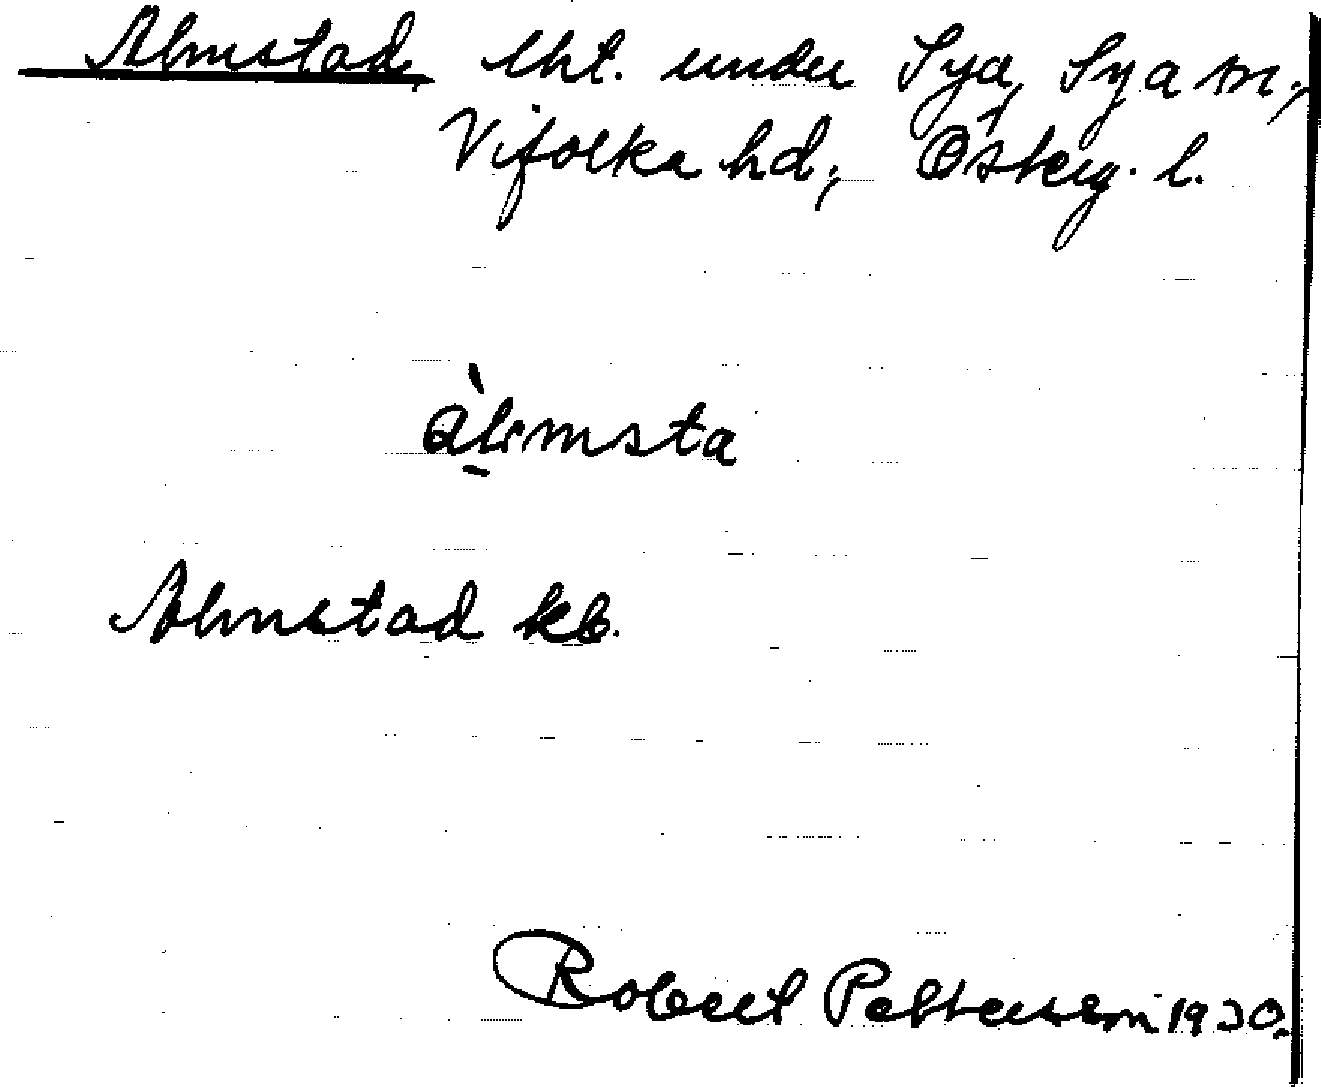 Almstad lht. under Sya, Sya sn;
Vifolka hd; Österg. l.
àlmsta
Almstad kb.
Robert Pettersson 1930.